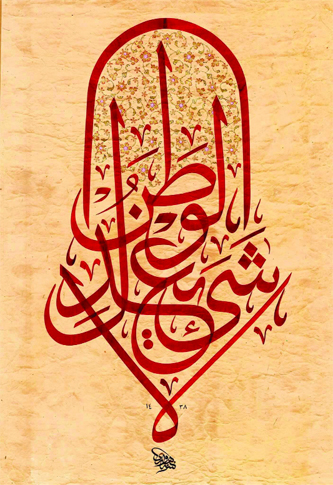 لا شيء يعدل الوطن
١٤ ٣٨